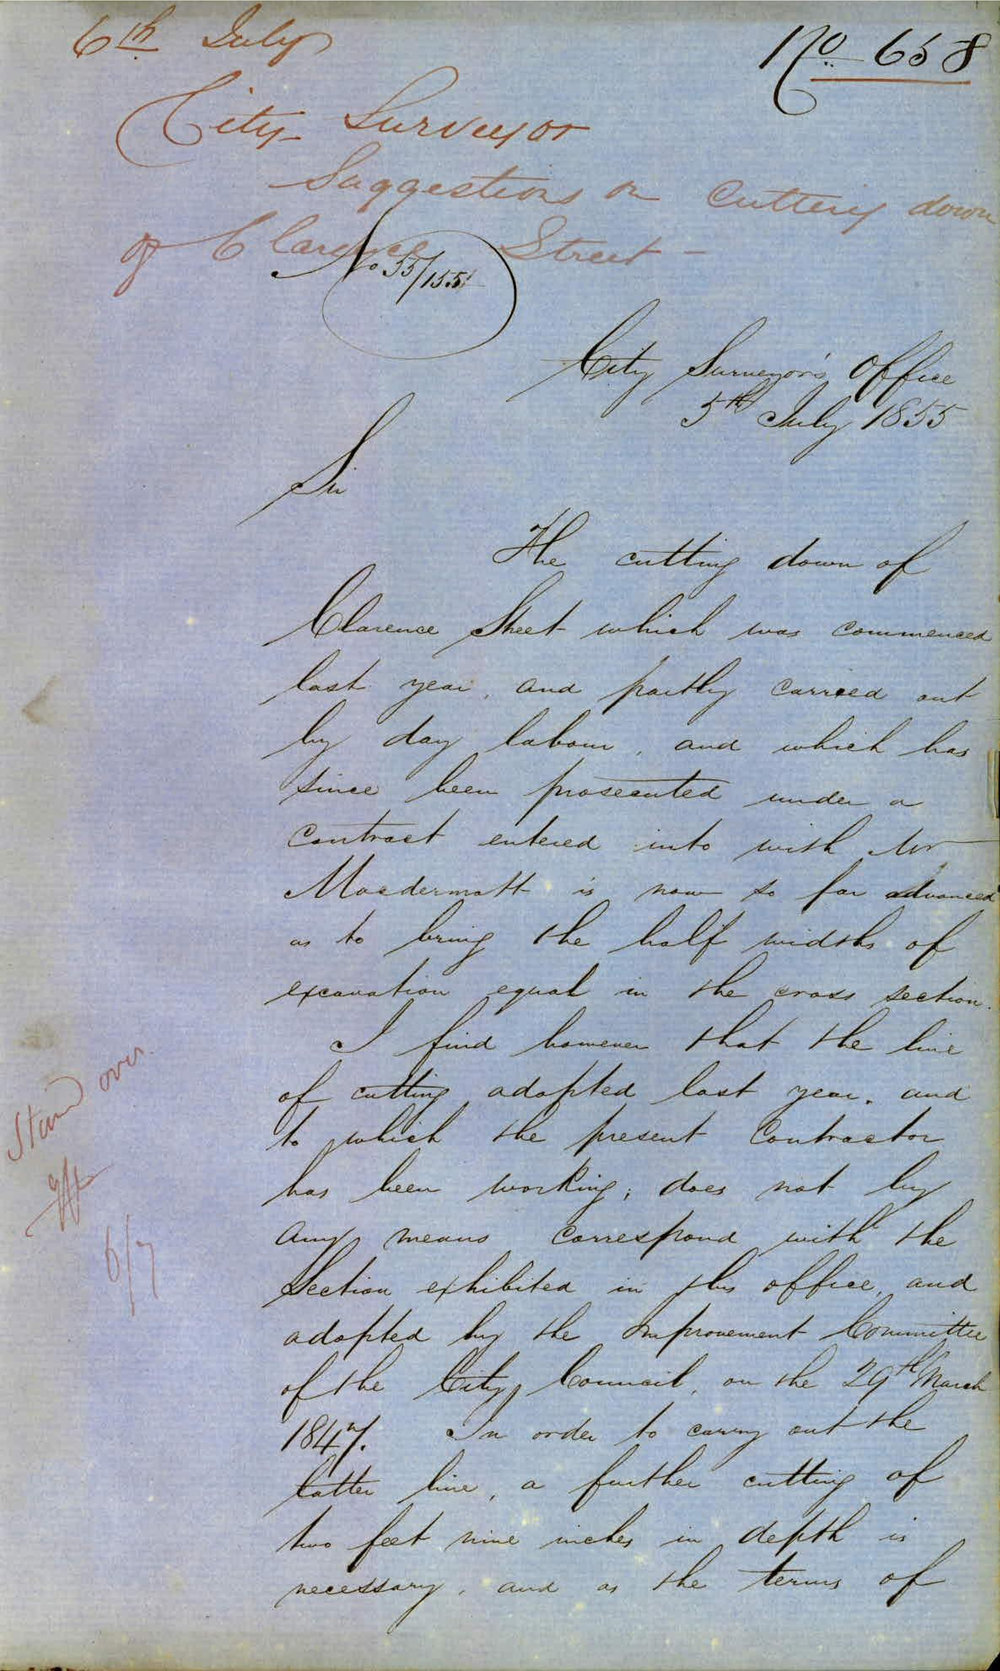 6th July
No 658
City Surveyor
Suggestions on Cutting down
of Clarence Street -
No 55/155
City Surveyor's Office
5th July 1855
Sir
The cutting down of
Clarence Street which was commenced
last year, and partly carried out
by day labour, and which has
since been prosecuted under a
contract entered into with Mr
Macdermott is now so far advanced
as to bring the half widths of
excavation equal in the cross section.
I find however that the line
of cutting adopted last year, and
to which the present Contractor
has been working; does not by
any means correspond with the
Section exhibited in this office, and
adopted by the Improvement Committee
of the City Council, on the 29th March
1847. In order to carry out the
latter line, a further cutting of
two feet nine inches in depth is
necessary, and as the terms of
Stand over
6/7